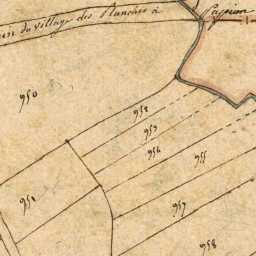 du village des Planches à
950
952
953
954
955
957
958